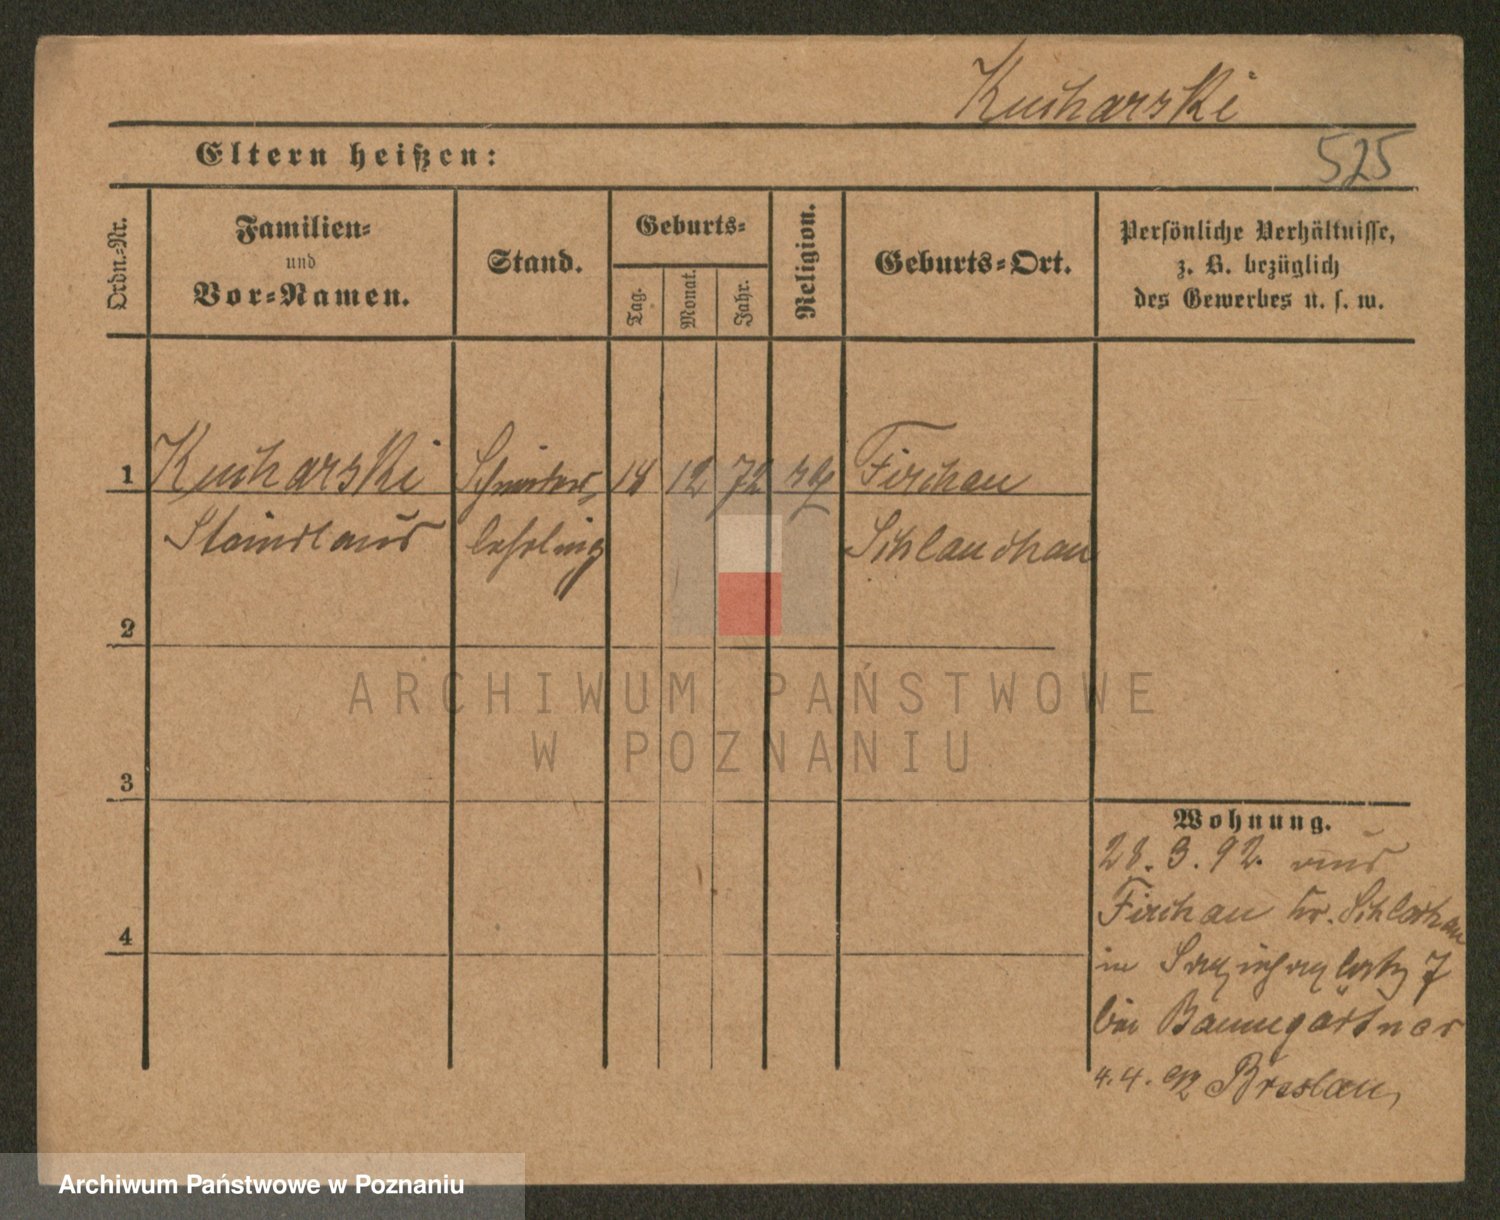 Kucharski
Eltern heißen:
525
Ordn.-Nr.
Familien-
und
Vor-Namen.
Stand.
Geburts-
Tag.
Monat.
Jahr.
Religion.
Geburts-Ort.
Persönliche Verhältnisse,
z. B. bezüglich
des Gewerbes u. s. w.
1 Kucharski Schneider- 18 12 72 Firchau
Stanislaus lehrling Schlauchau
2
ARCHIWUM PAŃSTWOWE
W POZNANIU
3
Wohnung.
28. 3. 92. aus
4
Firchau Kr. Schlochau
in Sapiehaplatz 7
bei Baumgärtner
4. 4. 92 Breslau,
Archiwum Państwowe w Poznaniu